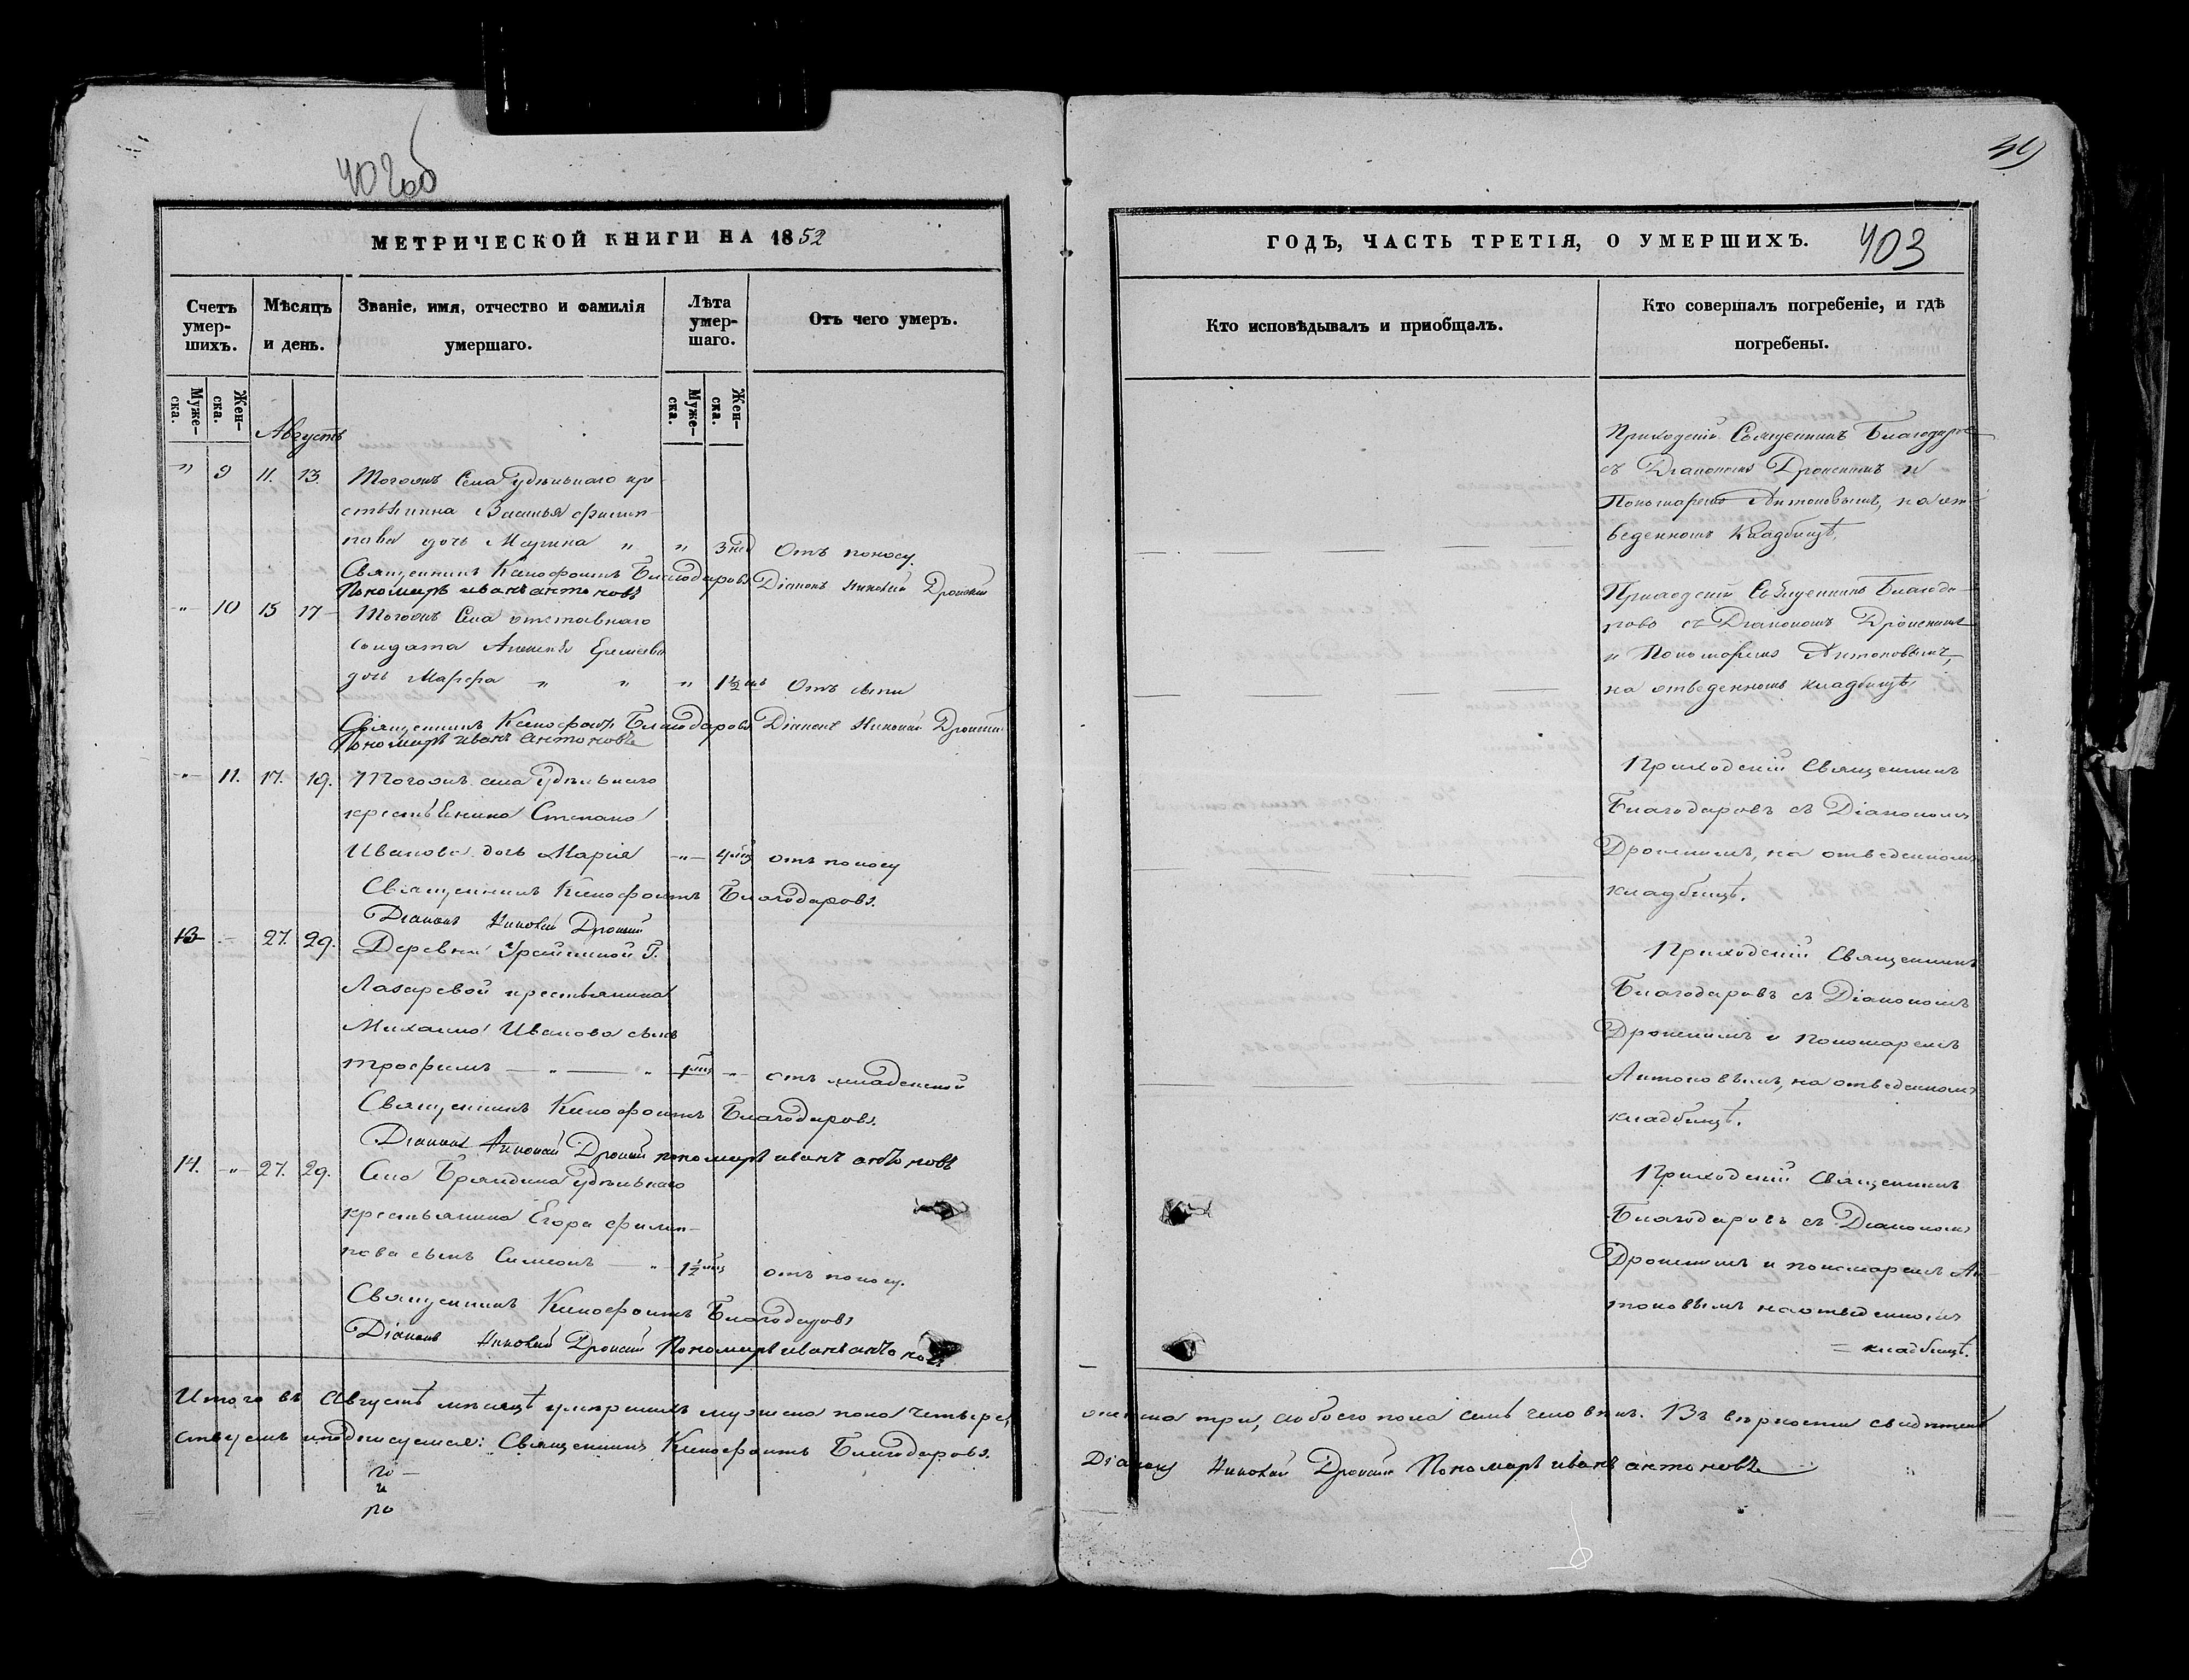 402об
49
МЕТРИЧЕСКОЙ КНИГИ НА 1852
Счетъ умер-шихъ.
Мѣсяцъ и день.
Званіе, имя, отчество и фамилія умершаго.
Лѣта умер-шаго.
Отъ чего умеръ.
Муже-ска.
Жен-ска.
Муже-ска.
Жен-ска.
Августъ
" 9 11. 13. Тогожъ Села Удѣльнаго кре
стьянина Василья Филип
пова дочь Марина " " 3 нед Отъ поносу.
Священникъ Ксенофонтъ Благодаровъ Діаконъ Николай Дронинъ
Пономарь иванъ антоновъ
" 10 15 17 Тогожъ Села отставнаго
солдата Алексѣя Еремеева
дочь Марфа " " " 1½ Отъ сыпи
Священникъ Ксенофонтъ Благодаровъ Діаконъ Николай Дронинъ
Пономарь иванъ антоновъ
" 11. 17. 19. Тогожъ села Удѣльнаго
крестьянина Степана
Иванова дочь Марія " 4 мѣс отъ поносу
Священникъ Ксенофонтъ Благодаровъ.
Діаконъ Николай Дронинъ
13 27. 29. Деревни Г.
Лазаревой крестьянина
Михаила Иванова сынъ
Трофимъ " " 1 мѣс " отъ младенской
Священникъ Ксенофонтъ Благодаровъ.
Діаконъ Николай Дронинъ пономарь иванъ антоновъ
14. " 27. 29. Села Бряндина Удѣльнаго
крестьянина Егора Филип-
пова сынъ Симеонъ " 1½ мѣс отъ поносу.
Священникъ Ксенофонтъ Благодаровъ
Діаконъ Николай Дронинъ Пономарь иванъ антоновъ
Итого въ Августѣ мѣсяцѣ умершихъ мужеска пола четыре,
ствуемъ и подписуемся: Священникъ Ксенофонтъ Благодаровъ.
ГОДЪ, ЧАСТЬ ТРЕТІЯ, О УМЕРШИХЪ. 403
Кто исповѣдывалъ и пріобщалъ.
Кто совершалъ погребеніе, и гдѣ погребены.
Приходскій Священникъ Благодаров
съ Діакономъ Дронинымъ и
Пономаремъ Антоновымъ, на от
веденномъ кладбищѣ.
Приходскій Священникъ Благода-
ровъ съ Діакономъ Дронинымъ
и Пономаремъ Антоновымъ,
на отведенномъ кладбищѣ
Приходскій Священникъ
Благодаровъ съ Діакономъ
Дронинымъ, на отведенномъ
кладбищѣ.
Приходскій Священникъ
Благодаровъ съ Діакономъ
Дронинымъ и пономаремъ
Антоновымъ, на отведенномъ
кладбищѣ.
Приходскій Священникъ
Благодаровъ съ Діакономъ
Дронинымъ и пономаремъ Ан-
тоновымъ на отведенномъ
= кладбищѣ.
женска три, а обоего пола семь человѣкъ. Въ вѣрности свидѣтель
Діаконъ Николай Дронинъ Пономарь иванъ антоновъ